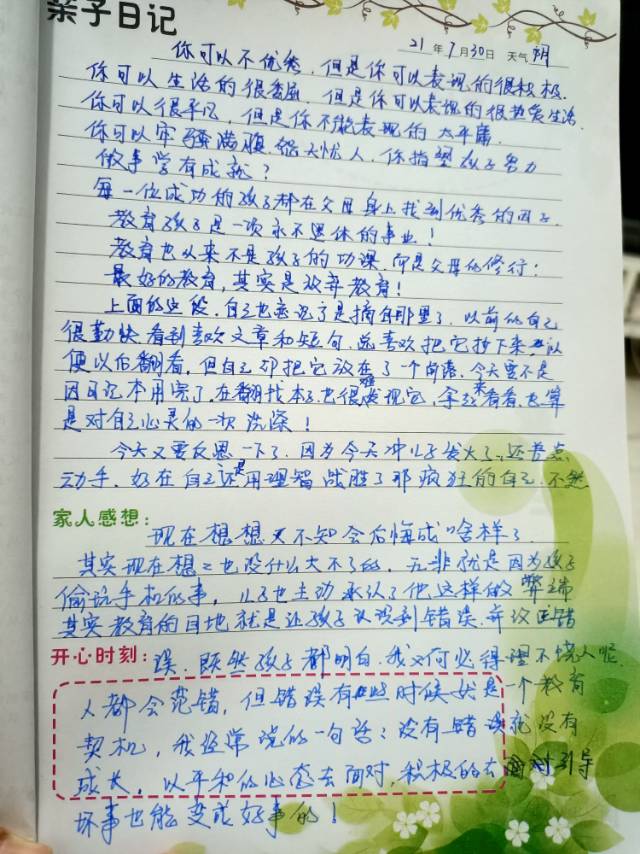 亲子日记
21年7月30日 天气 阴
你可以不优秀，但是你可以表现的很积极.
你可以生活的很委屈，但是你可以表现的很热爱生活.
你可以很平凡，但是你不能表现的太平庸.
你可以牢骚满腹 怨天忧人，你指望孩子努力
做事学有成就？
每一位成功的孩子都在父母身上找到优秀的因子.
教育孩子是一项永不退休的事业！
教育也从来不是孩子的功课，而是父母的修行：
最好的教育，其实是放弃教育！
上面的这段，自己也忘记了是摘自那里了，以前的自己
很勤快 看到喜欢文章和短句，就喜欢把它抄下来，以
便以后翻看，但自己却把它放在了一个角落，今天要不是
因日记本用完了，在翻找本子也很难发现它，拿起来看看，也算
是对自己心灵的一次洗涤！
今天又要反思一下了，因为今天冲儿子发火了，还差点
动手，好在自己还是用理智战胜了那疯狂的自己，不然
家人感想：
现在想想又不知会后悔成啥样了.
其实现在想想也没什么大不了的，无非就是因为孩子
偷玩手机的事，儿子也主动承认了他这样做弊端
其实教育的目地就是让孩子认识到错误，并改正错
开心时刻：误，既然孩子都明白，我又何必得理不饶人呢.
人都会范错，但错误有些时候就是一个教育
契机，我经常说的一句话：没有错误就没有
成长，以平和的心态去面对，积极的去引导
坏事也能变成好事的！